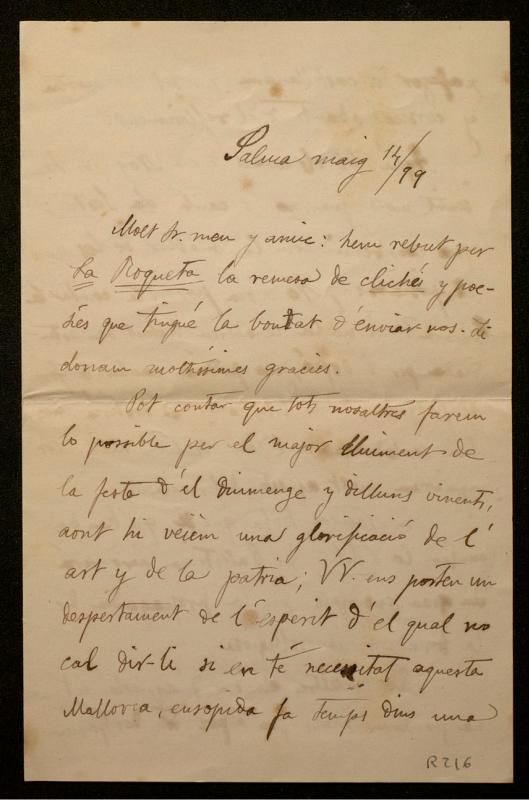 Palma maig 14/99
Molt Sr. meu y amic: hem rebut per
La Roqueta la remesa de clichés y poe-
sies que tingué la bontat d'enviar-nos. Li
donam moltíssimes gracies.
Pot contar que tots nosaltres farem
lo possible per el major lluiment de
la festa d'el diumenge y dilluns vinents,
aont hi veiém una glorificació de l'
art y de la patria; VV. ens porten un
despertament de l'esperit d'el qual no
cal dir-li si en té necessitat aquesta
Mallorca, ensopida fa temps dins una
R216